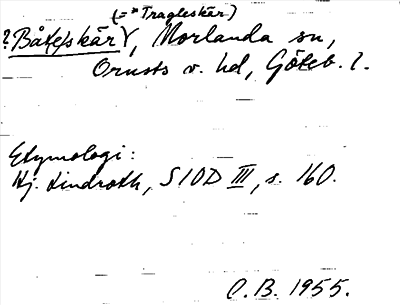 (= *Tragleskär)
? Båtesskär, Morlanda sn,
Orusts v. hd, Göteb. l.
Etymologi:
Hj. Lindroth, SIOD III, s. 160.
C.B. 1955.